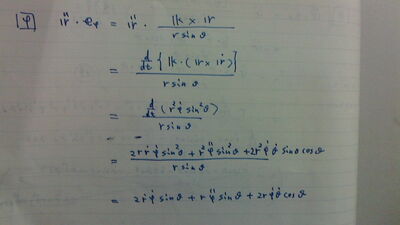 [φ] r̈ · e_φ = r̈ · (k × r) / (r sin θ)
= d/dt {k · (r × ṙ)} / (r sin θ)
= d/dt (r² φ̇ sin² θ) / (r sin θ)
= (2r ṙ φ̇ sin² θ + r² φ̈ sin² θ + 2r² φ̇ θ̇ sin θ cos θ) / (r sin θ)
= 2ṙ φ̇ sin θ + r φ̈ sin θ + 2r φ̇ θ̇ cos θ